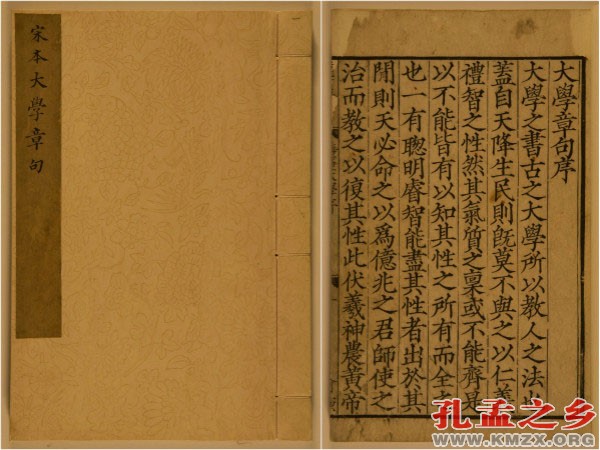 宋本大學章句
大學章句序
大學之書古之大學所以教人之法也
蓋自天降生民則既莫不與之以仁義
禮智之性然其氣質之稟或不能齊是
以不能皆有以知其性之所有而全之
也一有聰明睿智能盡其性者出於其
閒則天必命之以爲億兆之君師使之
治而教之以復其性此伏羲神農黃帝
孔孟之乡
WWW.KMZX.ORG